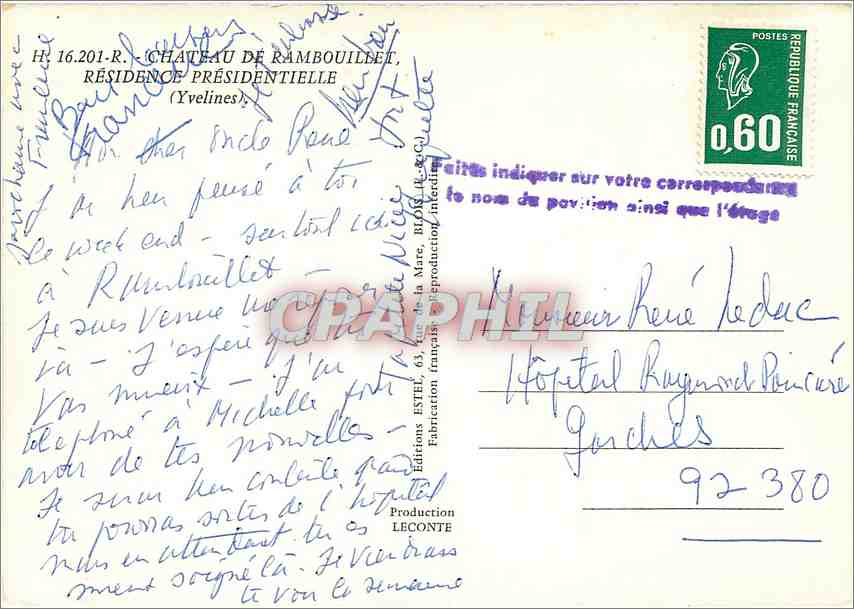 H. 16.201-R. - CHATEAU DE RAMBOUILLET,
RÉSIDENCE PRÉSIDENTIELLE
(Yvelines).
POSTES
RÉPUBLIQUE FRANÇAISE
0,60
Faites indiquer sur votre correspondance
le nom du pavillon ainsi que l'étage
Mon cher Oncle René
J'ai bien pensé à toi
Le week end - surtout ici
à Rambouillet -
Je suis venue
là - J'espère que tu
vas mieux - J'ai
téléphoné à Michelle pour
avoir de tes nouvelles -
Je serai bien contente quand
tu pourras sortir de l'hôpital
mais en attendant tu es
bien soigné là. Je viendrais
te voir la semaine
prochaine avec
Francine
Bons baisers
Ta petite Nièce
Editions ESTEL, 63, rue de la Mare, BLOIS (L.-&-C.)
Fabrication française - Reproduction interdite
Production
LECONTE
CPAPHIL
Monsieur René Leduc
Hôpital Raymond Poincaré
Garches
92 380